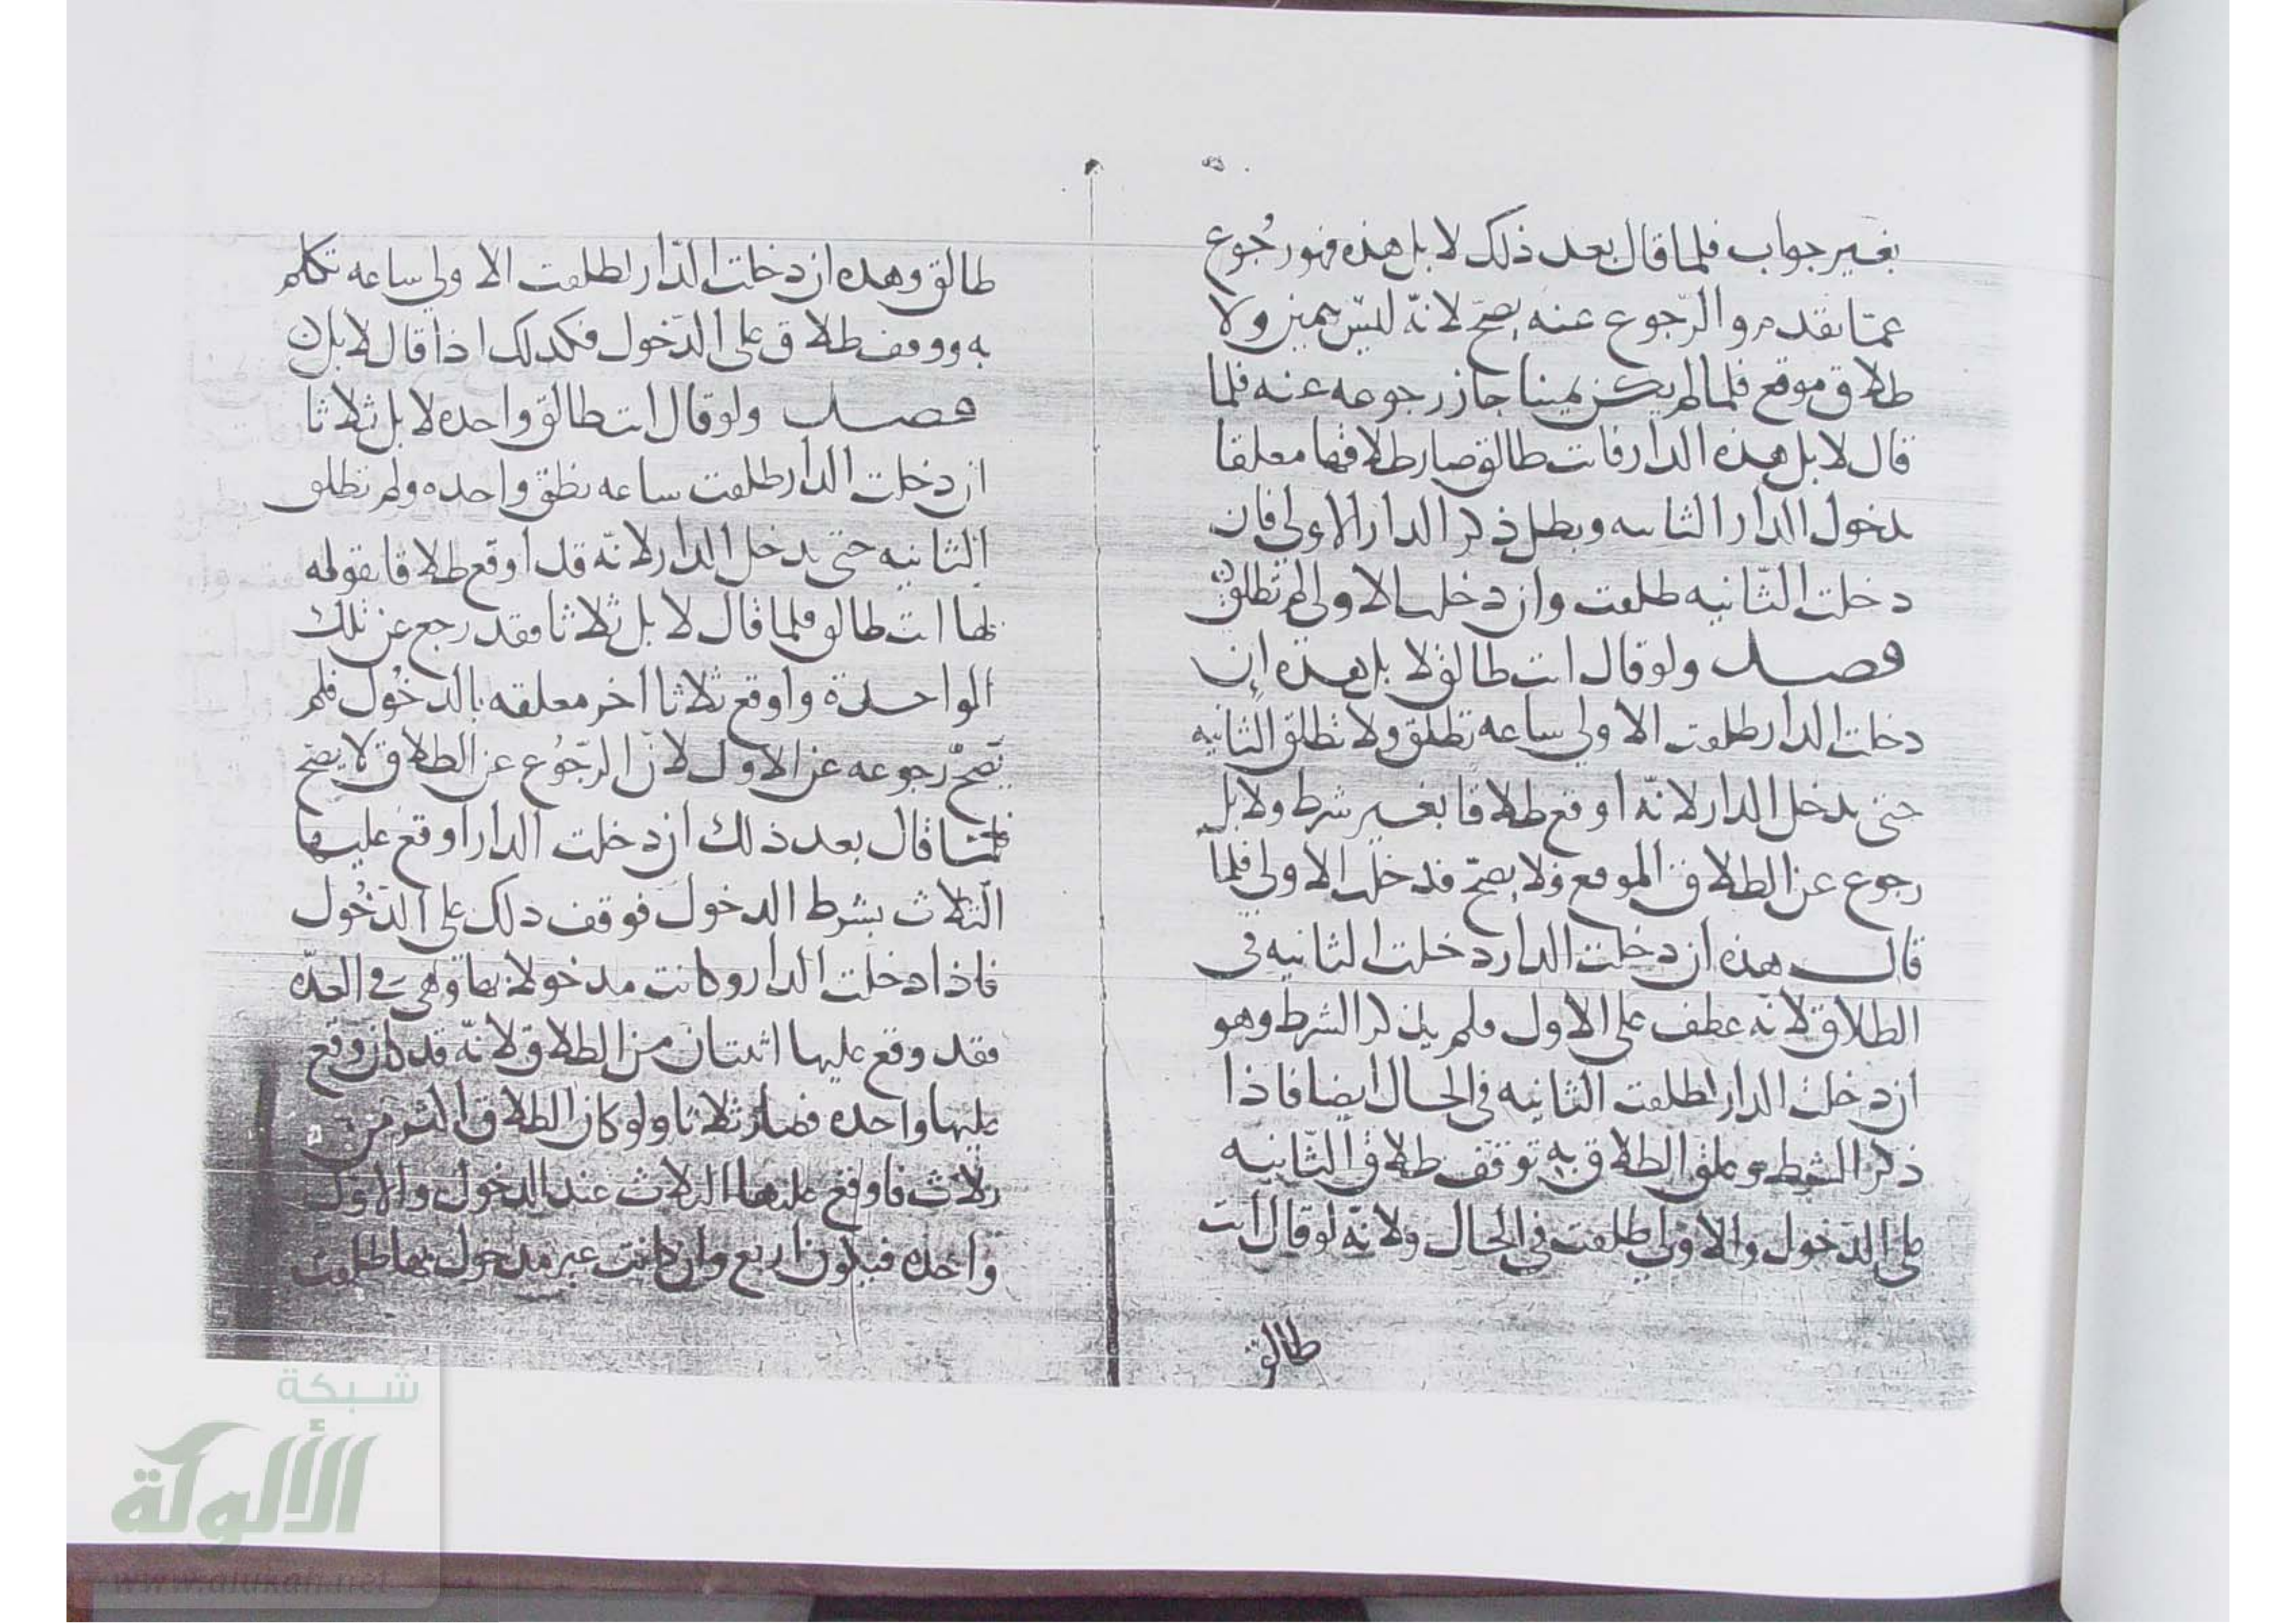 بغير جواب فلما قال بعد ذلك لا بل هذه فهو رجوع
عما تقدم والرجوع عنه يصح لانه ليس بيمين ولا
طلاق موقع فلما لم يكن يمينا جاز رجوعه عنه فلما
قال لا بل هذه الدار فانت طالق صار طلاقها معلقا
بدخول الدار الثانيه وبطل ذكر الدار الاولى فان
دخلت الثانيه طلقت وان دخلت الاولى لم تطلق
فصل ولو قال انت طالق لا بل هذه ان
دخلت الدار طلقت الاولى ساعه تطلق ولا تطلق الثانيه
حتى تدخل الدار لانه اوقع طلاقا بغير شرط ولا بل
رجوع عن الطلاق الموقع ولا يصح فدخلت الاولى فلما
قال هذه ان دخلت الدار دخلت الثانيه في
الطلاق لانه عطف على الاول ولم يذكر الشرط وهو
ان دخلت الدار لطلقت الثانيه في الحال ايضا فاذا
ذكر الشرط وعلق الطلاق به توقف طلاق الثانيه
على الدخول والاولى طلقت في الحال ولانه لو قال انت
طالق
طالق وهذه ان دخلت الدار لطلقت الاولى ساعه تكلم
به ووقف طلاق على الدخول فكذلك اذا قال لا بل
فصل ولو قال انت طالق واحده لا بل ثلاثا
ان دخلت الدار طلقت ساعه نطق واحده ولم تطلق
الثانيه حتى تدخل الدار لانه قد اوقع طلاقا بقوله
لها انت طالق فلما قال لا بل ثلاثا فقد رجع عن تلك
الواحدة واوقع ثلاثا اخر معلقه بالدخول فلم
يصح رجوعه عن الاول لان الرجوع عن الطلاق لا يصح
فلما قال بعد ذلك ان دخلت الدار اوقع عليها
الثلاث بشرط الدخول فوقف ذلك على الدخول
فاذا دخلت الدار وكانت مدخولا بها وهي في العده
فقد وقع عليها اثنتان من الطلاق لانه قد كان وقع
عليها واحده فصار ثلاثا ولو كان الطلاق اكثر من
ثلاث فاوقع عليها الثلاث عند الدخول والاول
واحده فيكون اربع وان كانت غير مدخول بها طلقت
شبكة
الألوكة
www.alukah.net